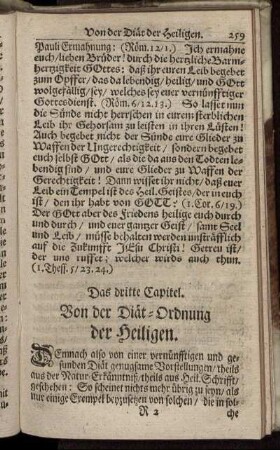 Von der Diät der Heiligen. 259
Pauli Ermahnung: (Röm. 12/1.) Ich ermahne
euch/lieben Brüder! durch die hertzliche Barm-
hertzigkeit GOttes: daß ihr euren Leib begebet
zum Opffer/ das da lebendig/ heilig/ und GOtt
wolgefällig/sey/ welches sey euer vernünfftiger
Gottesdienst. (Röm. 6/12.13.) So lasset nun
die Sünde nicht herrschen in eurem sterblichen
Leib ihr Gehorsam zu leisten in ihren Lüsten!
Auch begebet nicht der Sünde eure Glieder zu
Waffen der Ungerechtigkeit/ sondern begebet
euch selbst GOtt/ als die da aus den Todten le-
bendig sind/ und eure Glieder zu Waffen der
Gerechtigkeit! Dann wisset ihr nicht/ daß euer
Leib ein Tempel ist des Heil. Geistes/ der in euch
ist/ den ihr habt von GOTT? (1. Cor. 6/19.)
Der GOtt aber des Friedens heilige euch durch
und durch/ und euer gantzer Geist/ samt Seel
und Leib/ müsse behalten werden unsträfflich
auf die Zukunfft JEsu Christi! Getreu ist/
der uns ruffet; welcher wirds auch thun.
(1. Thess. 5/23.24.)
Das dritte Capitel.
Von der Diät-Ordnung
der Heiligen.
DEmnach also von einer vernünfftigen und ge-
sunden Diät genugsame Vorstellungen/ theils
aus der Natur-Erkänntniß/ theils aus Heil. Schrifft/
geschehen: So scheinet nichts mehr übrig zu seyn/ als
nur einige Exempel beyzusetzen von solchen/ die in sol-
R 2 che